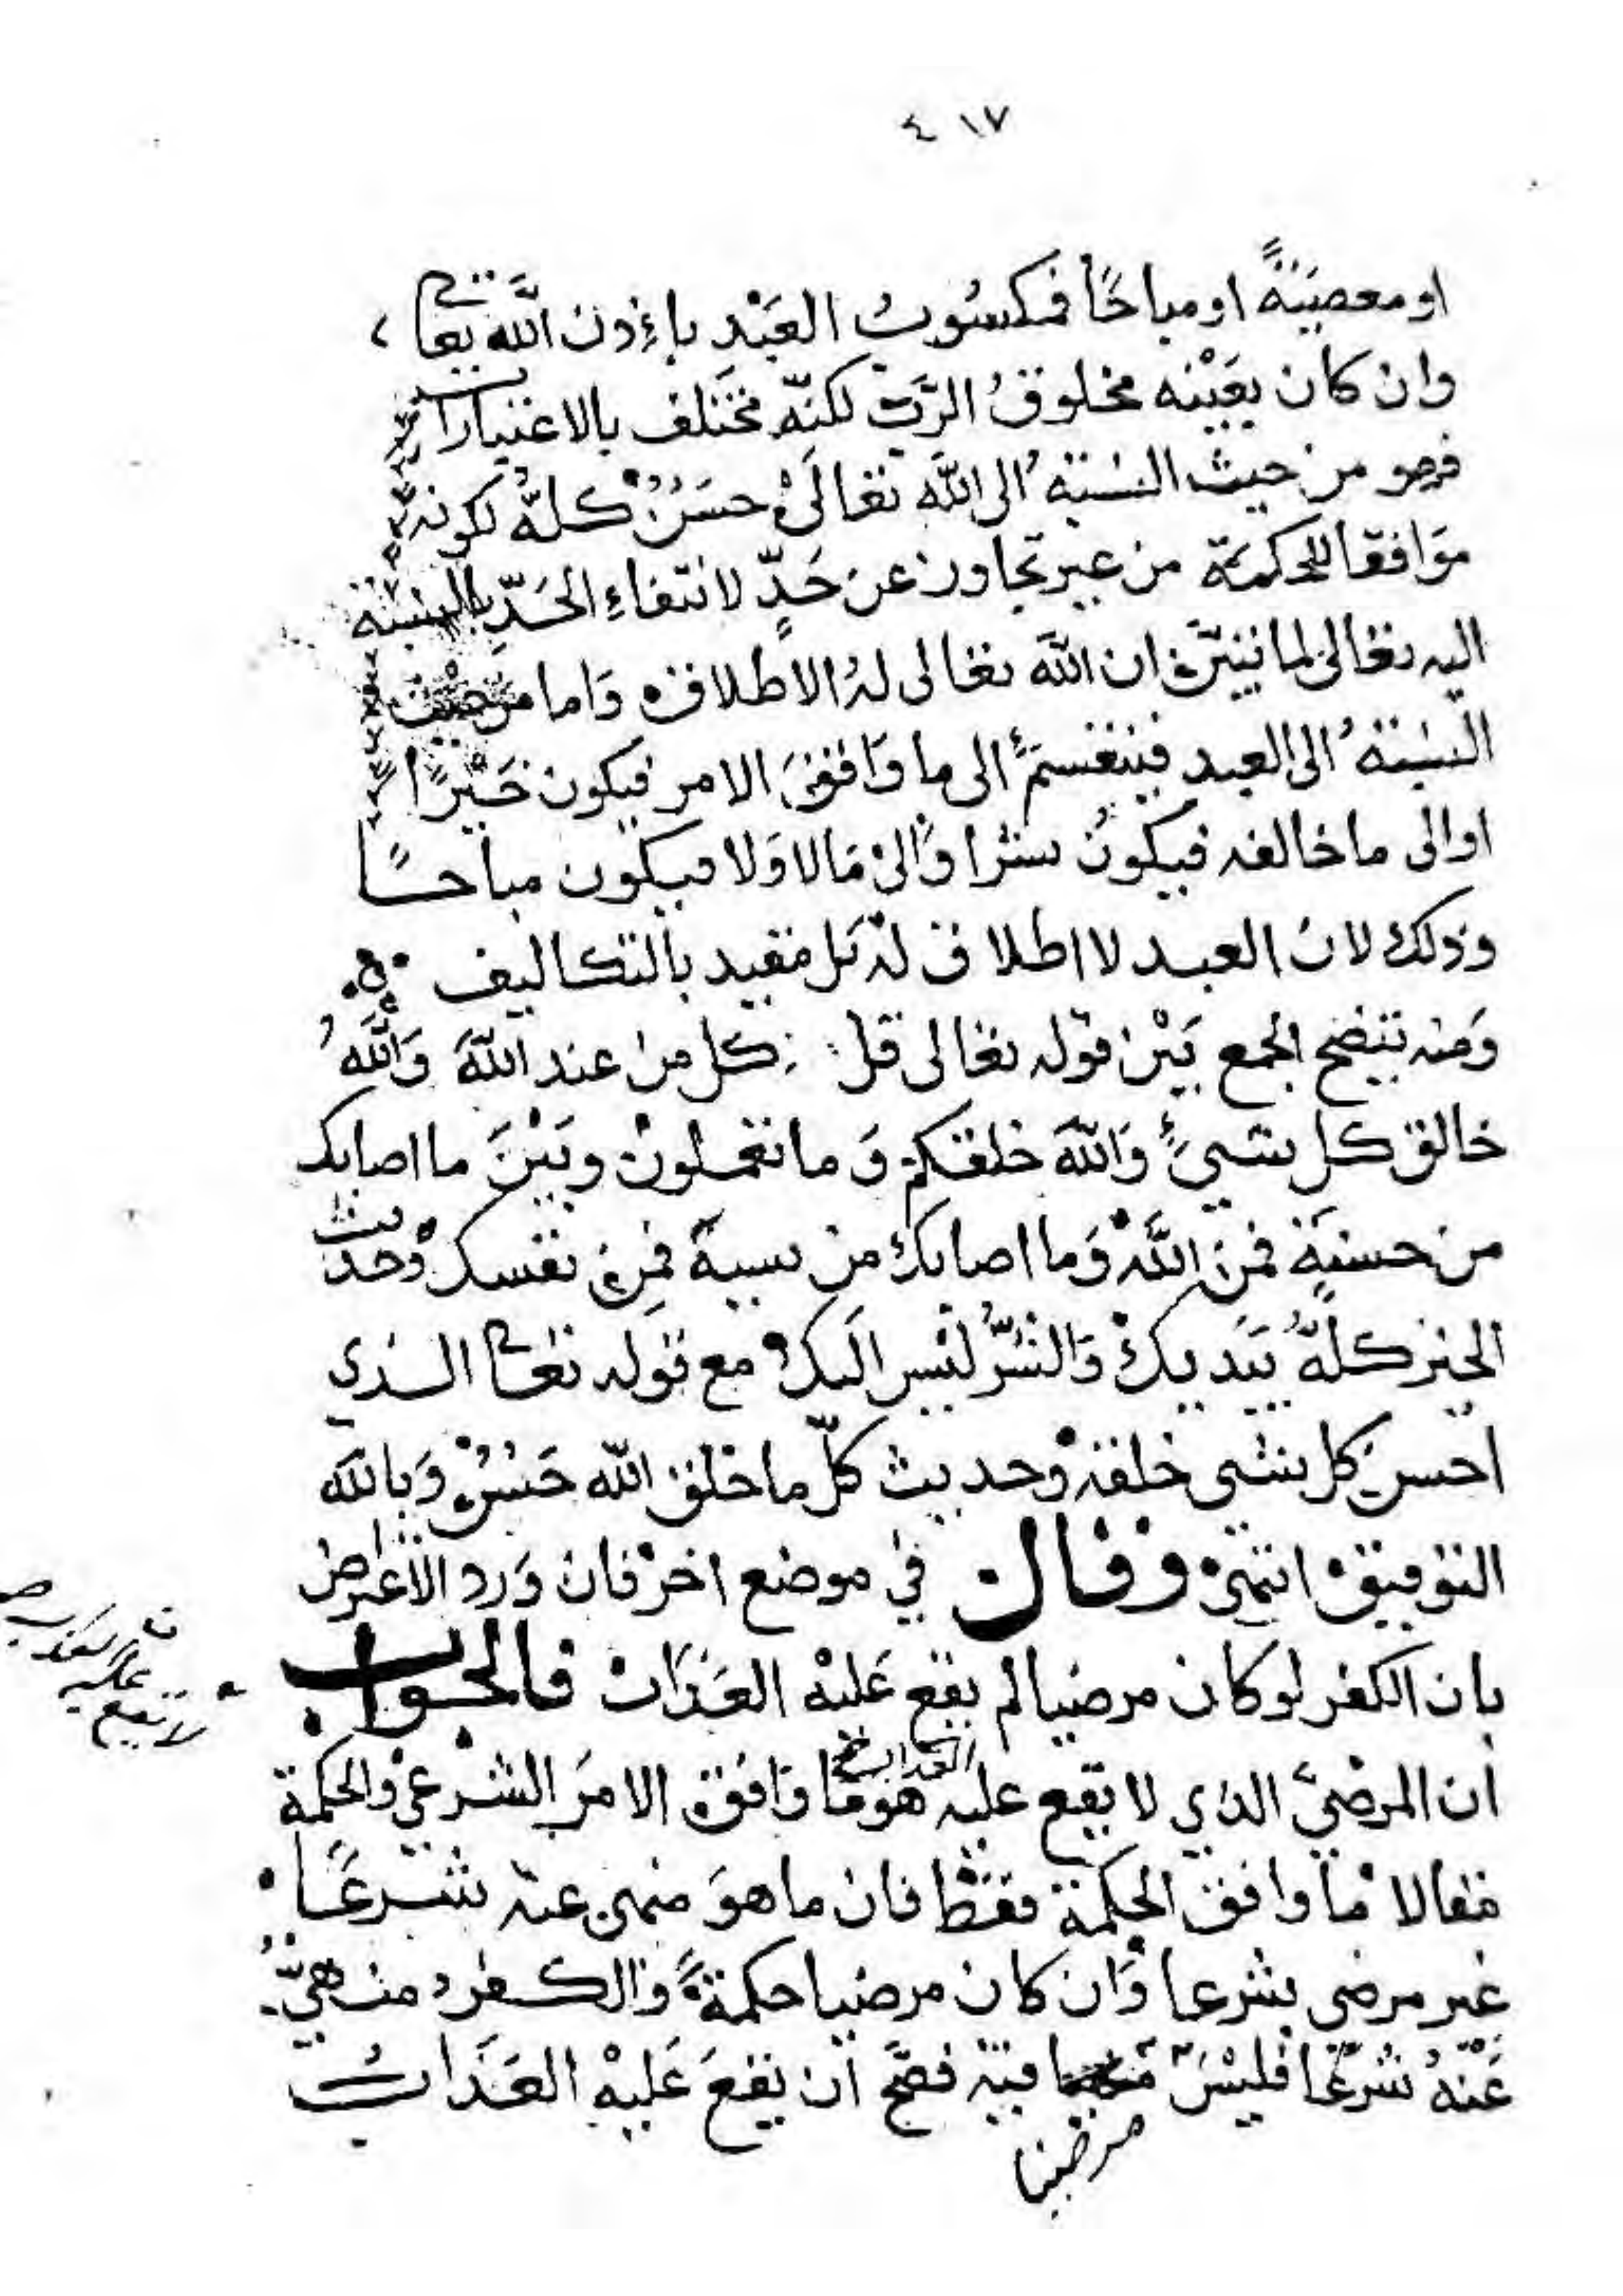 ٤١٧
او معصيةً او مباحًا فمكسوب العبد باذن الله تعالى
وان كان بعينه مخلوق الرب لكنه مختلف بالاعتبارات
فهو من حيث النسبة الى الله تعالى حسن كله لكونه
موافقا للحكمة من غير تجاوز عن حدٍّ لانتفاء الحدّ بالنسبة
اليه تعالى لما تبين ان الله تعالى له الاطلاق واما من حيث
النسبة الى العبد فينقسم الى ما وافق الامر فيكون خيرًا
او الى ما خالفه فيكون شرا والى ما لا ولا فيكون مباحًا
وذلك لان العبد لا اطلاق له بل مقيد بالتكاليف
ومنه يتضح الجمع بين قوله تعالى قل كل من عند الله والله
خالق كل شيئ والله خلقكم وما تعملون وبين ما اصابك
من حسنة فمن الله وما اصابك من سيية فمن نفسك وحديث
الخير كله بيديك والشر ليس اليك مع قوله تعالى الذي
احسن كل شى خلقه وحديث كل ما خلق الله حسن وبالله
التوفيق انتهى وقال في موضع اخر فان ورد الاعتراض
بان الكفر لو كان مرضيا لم يقع عليه العذاب فالجواب
ان المرضيّ الذي لا يقع عليه العذاب هو ما وافق الامر الشرعي والحكمة
فقالا ما وافق الحكمة فقط فان ما هو منهى عنه شرعًا
غير مرضى شرعا وان كان مرضيا حكمةً والكفر منهيّ
عنه شرعًا فليس فيه فصحّ ان يقع عليه العذاب
مرضيا
عليه
لا يقع